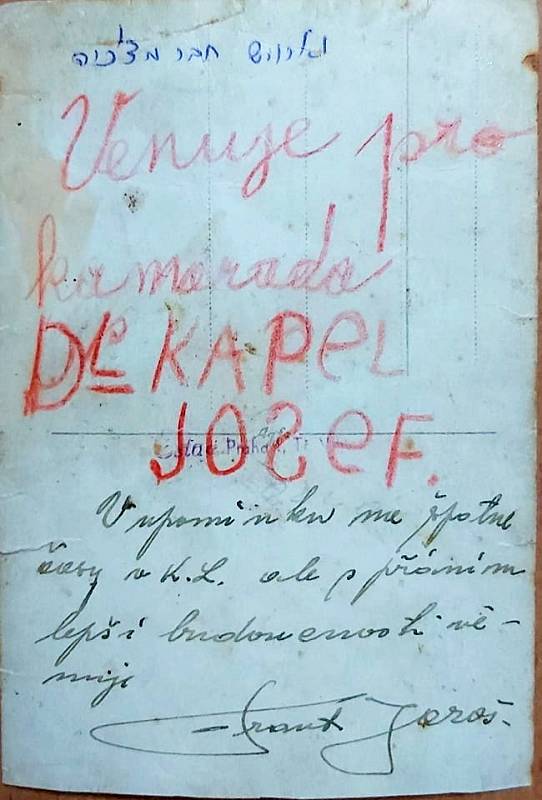 חבר מצ'כיה
Venuje pro
kamarada
Dr KAPEL
JOSEF.
Praha
V upomínku na špatné
časy v K.L. ale s přáním
lepší budoucnosti vě-
nuji
Frant Jaroš.